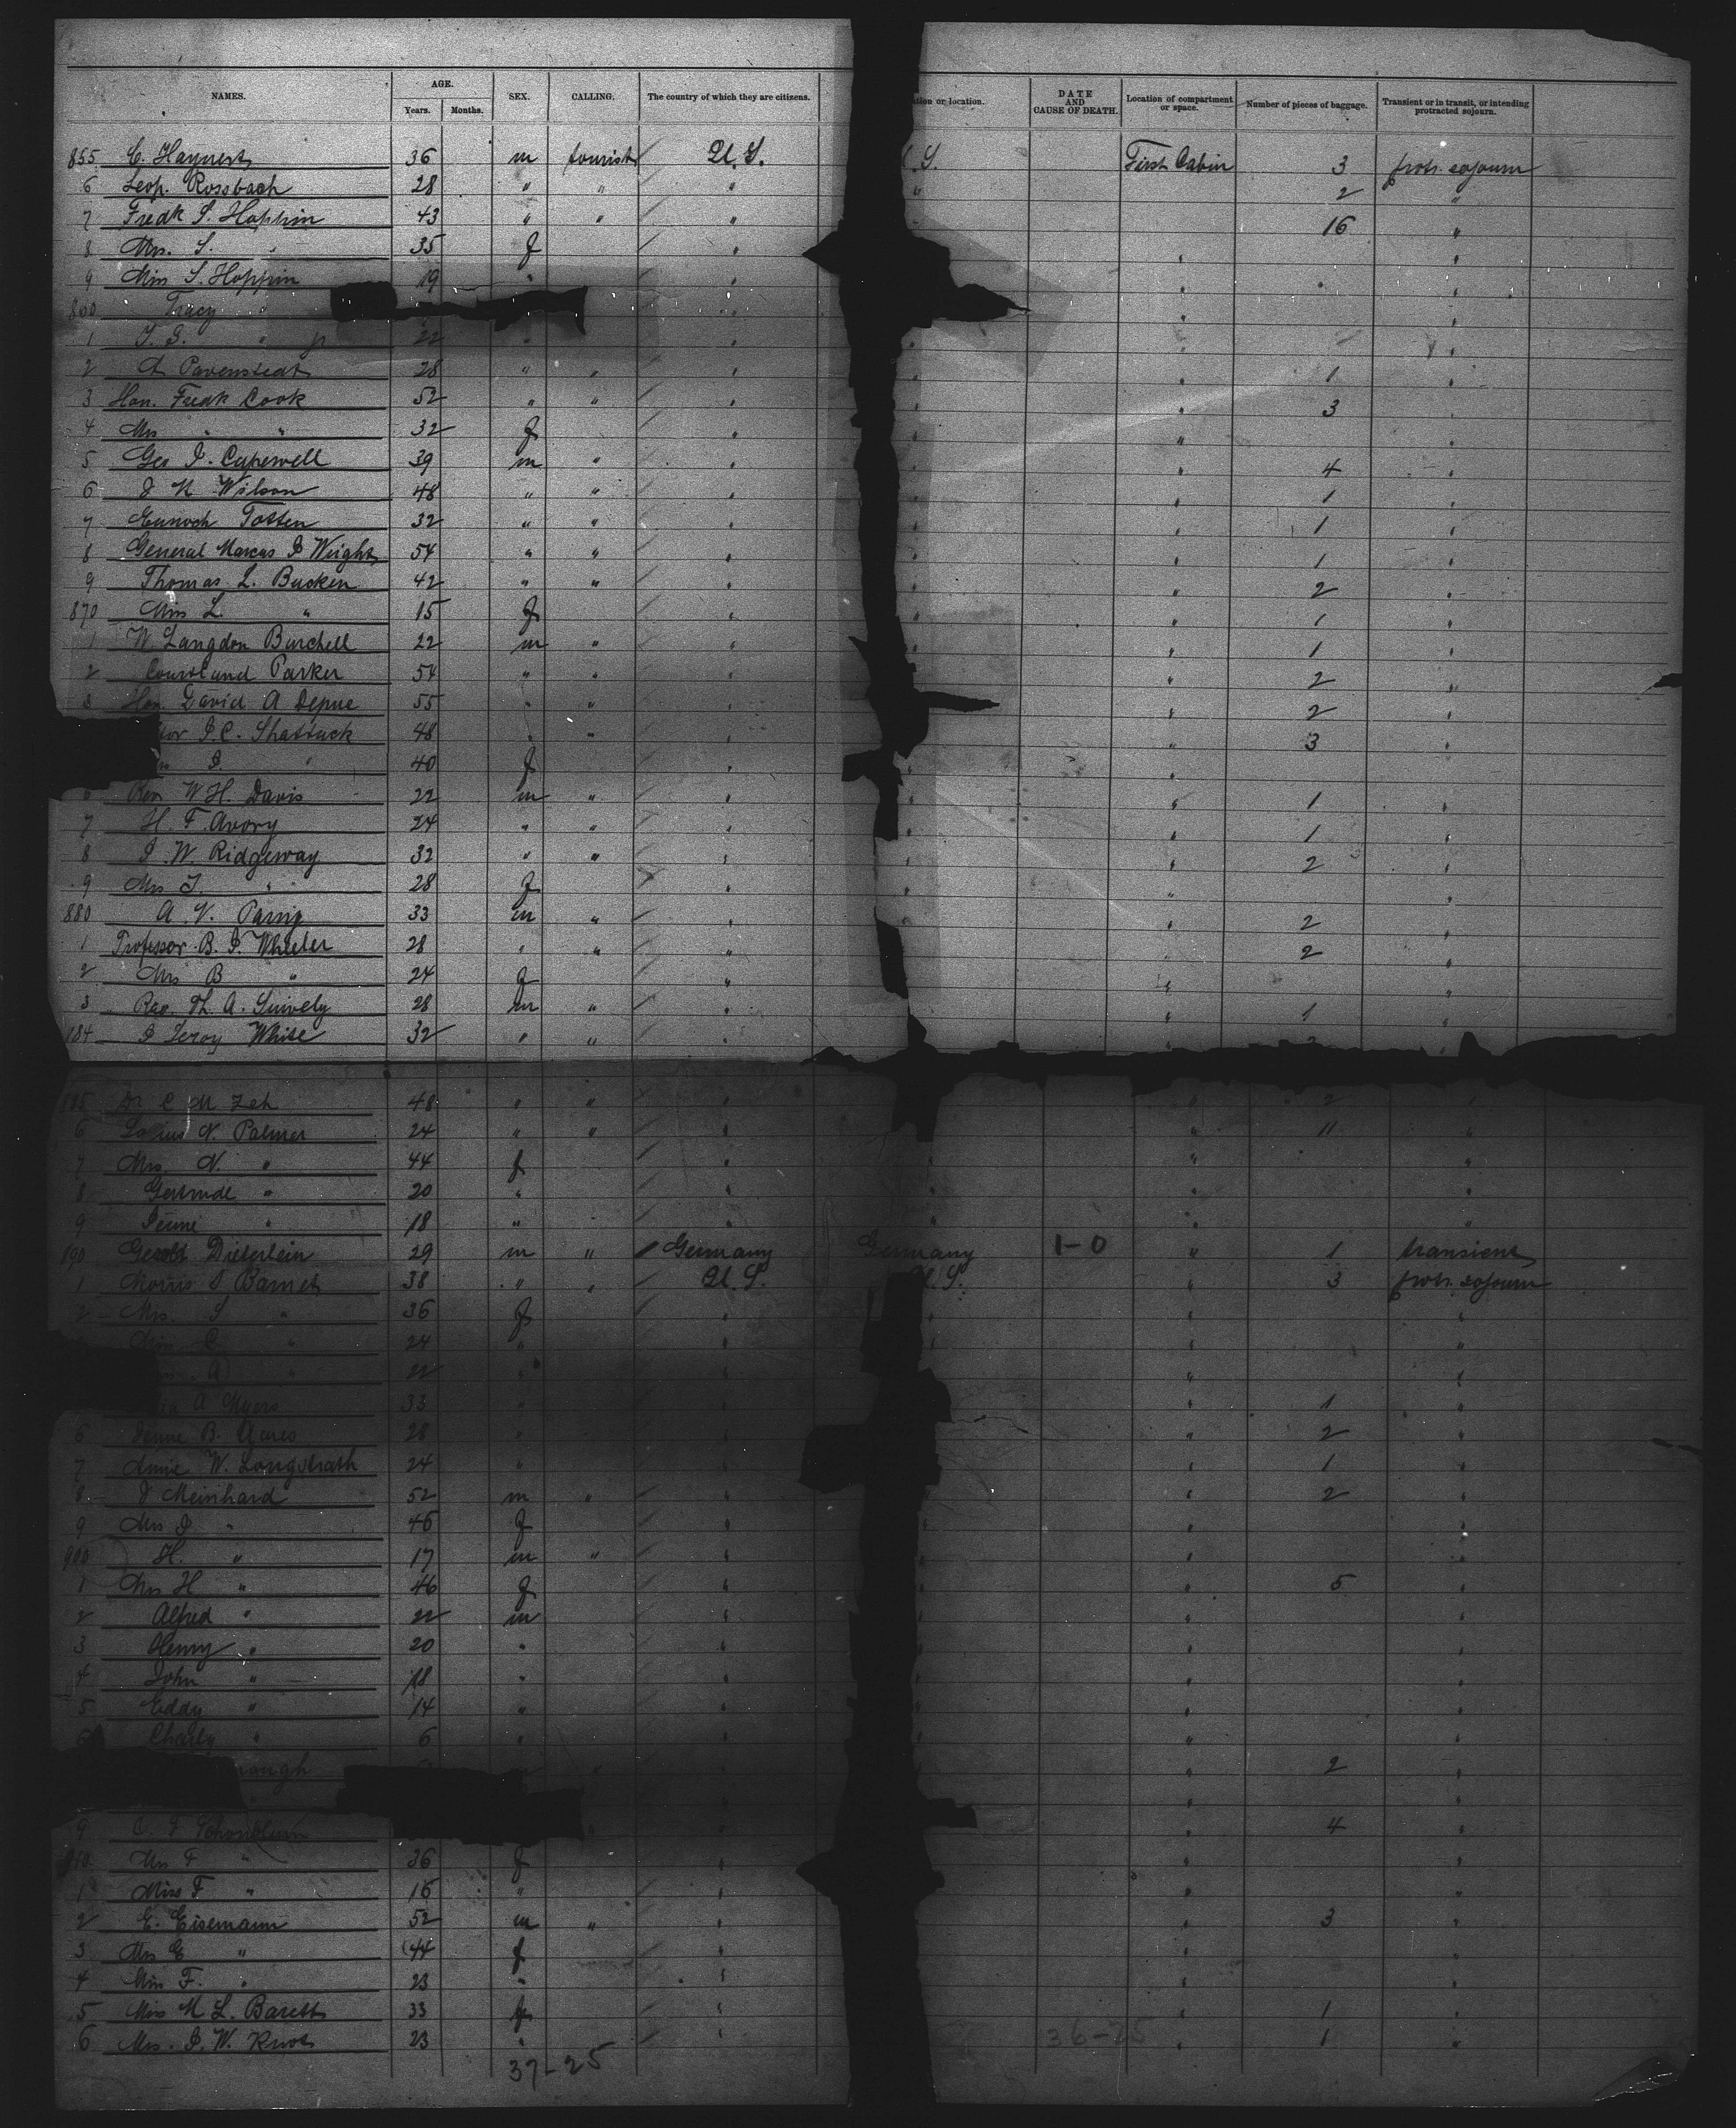 NAMES. AGE. Years. Months. SEX. CALLING. The country of which they are citizens. tion or location. DATE AND CAUSE OF DEATH. Location of compartment or space. Number of pieces of baggage. Transient or in transit, or intending protracted sojourn.
855 C. 36 m tourist U.S. S. First Cabin 3 protr. sojourn
6 Leop. Rossbach 28 " " " " 2 "
7 Fredk S. Hoppin 43 " " " 16 "
8 Mrs. S. " 35 f " " "
9 Miss S. Hoppin 19 " " " "
860 Tracy " " " "
1 " jr 22 " " " " "
2 A Pavenstedt 28 " " " " " 1 "
3 Hon. Fredk Cook 52 " " " " " 3 "
4 Mrs " " 32 f " " " "
5 Geo J. Capewell 39 m " " " " 4 "
6 J N Wilson 48 " " " " " 1 "
7 Eunoch Totten 32 " " " " " 1 "
8 General Marcus J Wright 54 " " " " " 1 "
9 Thomas L. 42 " " " " " 2 "
870 Miss L. " 15 f " " " 1 "
1 W. Langdon Burchell 22 m " " " " 1 "
2 Courtland Parker 54 " " " " " 2 "
3 Hon. David A Depue 55 " " " " 2 "
tor J. C. Shattuck 48 " " " " 3 "
J. " 40 f " " " "
6 Rev W H. Davis 22 m " " " " 1 "
7 H. F. Avory 24 " " " " " 1 "
8 J. W. Ridgeway 32 " " " " " 2 "
9 Mrs J. " 28 f " " " "
880 A. V. 33 m " " " " 2 "
1 Professor B. I. Wheeler 28 " " " " 2 "
2 Mrs B " 24 f " " "
3 Rev. Th. A. Snively 28 m " " " 1 "
184 J Leroy White 32 " " " " "
185 Dr C M Zeh 48 " " " " 2 "
6 N. Palmer 24 " " " " 11 "
7 Mrs. N. " 44 f " " " "
8 Gertrude " 20 " " " " "
9 Jenni " 18 " " " " "
190 Gerold Dieterlein 29 m " Germany Germany 1-0 " 1 transient
1 Morris S Barnet 38 " " U.S. U.S. " 3 protr. sojourn
2 Mrs. S " 36 f " " " "
Miss C " 24 " " " "
A " 22 " " " "
A Myers 33 " " 1 "
6 Jenne B. Acres 28 " " " 2 "
7 Annie W. Longstrath 24 " " " 1 "
8 J Meinhard 52 m " " " " 2 "
9 Mrs J " 45 f " " " "
900 H. " 17 m " " " " "
1 Mrs H " 46 f " " " 5 "
2 Alfred " 22 m " " " "
3 Henry " 20 " " " " "
4 John " 18 " " " " "
5 Eddy " 14 " " " " "
6 Charly " 6 " " " " "
augh " " " 2 "
9 C. F " " " 4 "
910 Mrs F " 36 f " " "
1 Miss F " 16 " " " " "
2 E. Eisemann 52 m " " " " 3 "
3 Mrs E " 44 f " " " "
4 Miss F. " 23 " " " " "
5 Miss M L. Barett 33 f " " " 1 "
6 Mrs. J. W. Knot 23 " " " 1 "
37-25 36-25